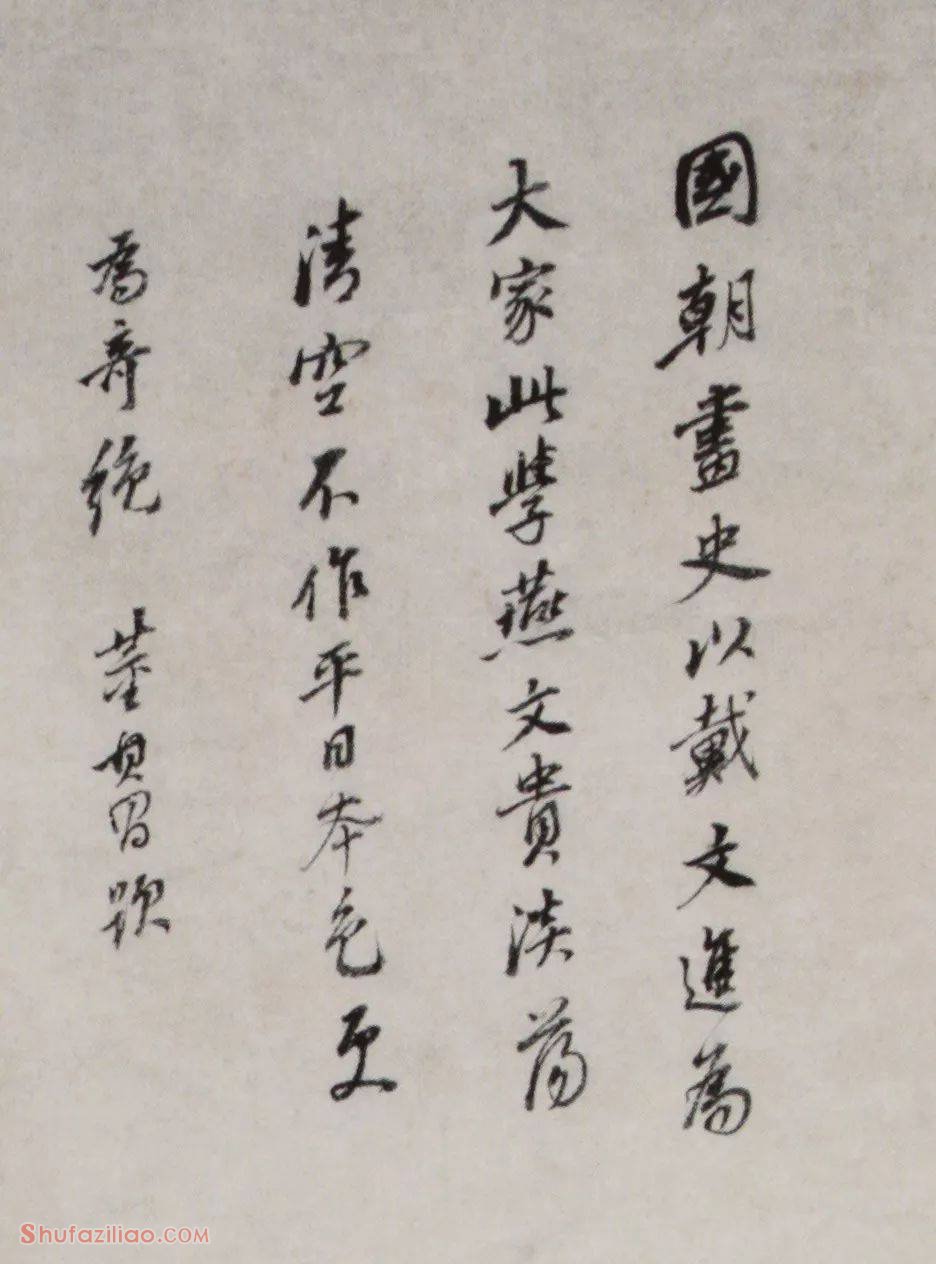 國朝畫史以戴文進爲
大家此學燕文貴淡蕩
清空不作平日本色更
爲奇絶 董其昌題
Shufaziliao.com